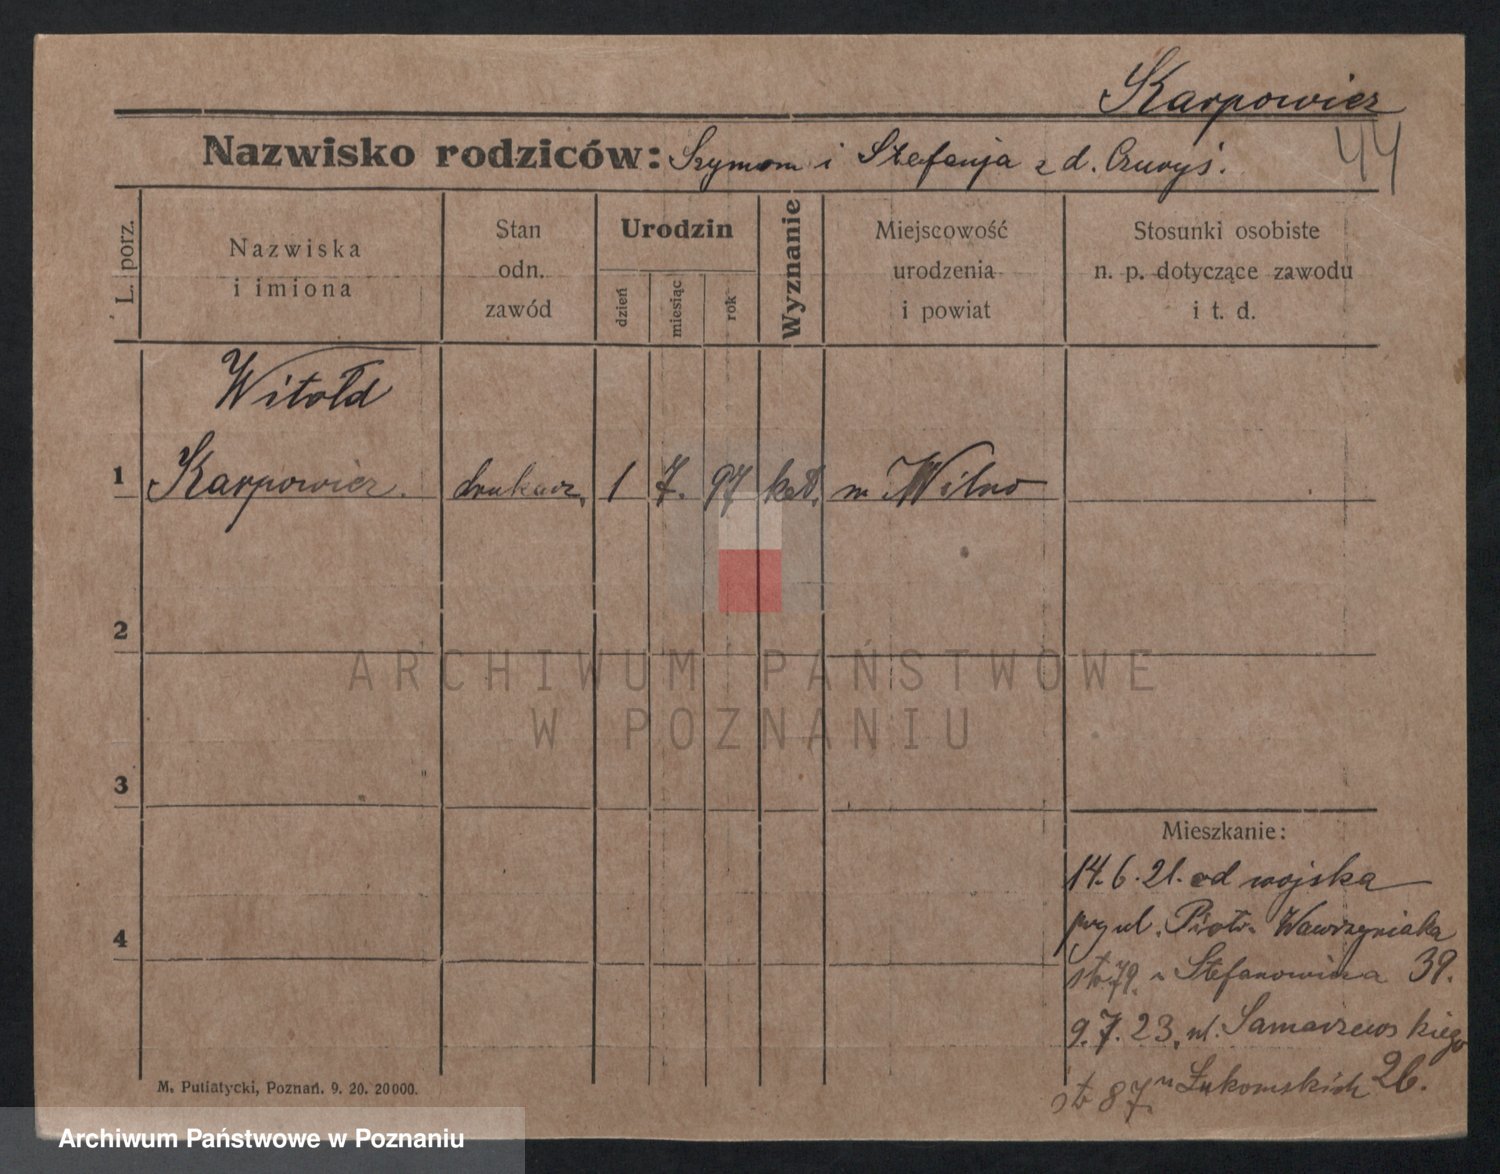 Karpowicz
Nazwisko rodziców: Szymon i Stefanja z d. Czuryś.
44
L. porz.
Nazwiska
i imiona
Stan
odn.
zawód
Urodzin
dzień
miesiąc
rok
Wyznanie
Miejscowość
urodzenia
i powiat
Stosunki osobiste
n. p. dotyczące zawodu
i t. d.
Witołd
1 Karpowicz. drukarz, 1 7. 97 kat. m Wilno
2
ARCHIWUM PAŃSTWOWE
W POZNANIU
3
Mieszkanie:
14.6.21. od wojska
przy ul. Piotr. Wawrzyniaka
39.
u Stefanowicza
9.7.23. ul. Samarzewskiego
26.
u Łukomskich
4
M. Putiatycki, Poznań. 9. 20. 20000.
Archiwum Państwowe w Poznaniu